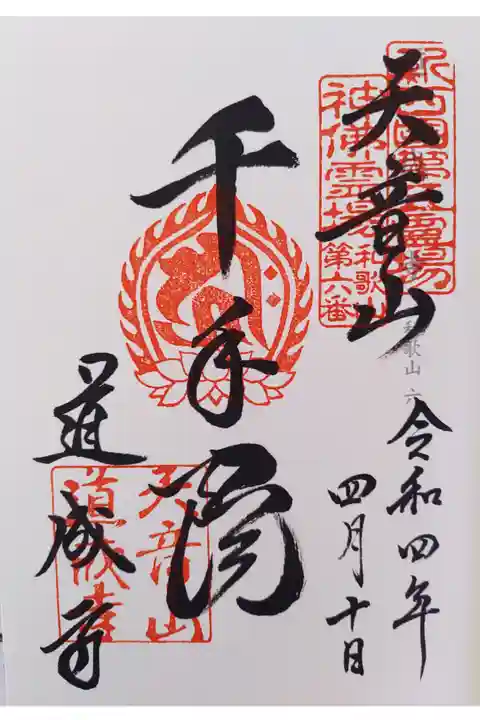 天音山
新西國第五靈場
神佛霊場
和歌山
第六番
和歌山 六
令和四年
四月十日
千手閣
道成寺
天音山
道成寺